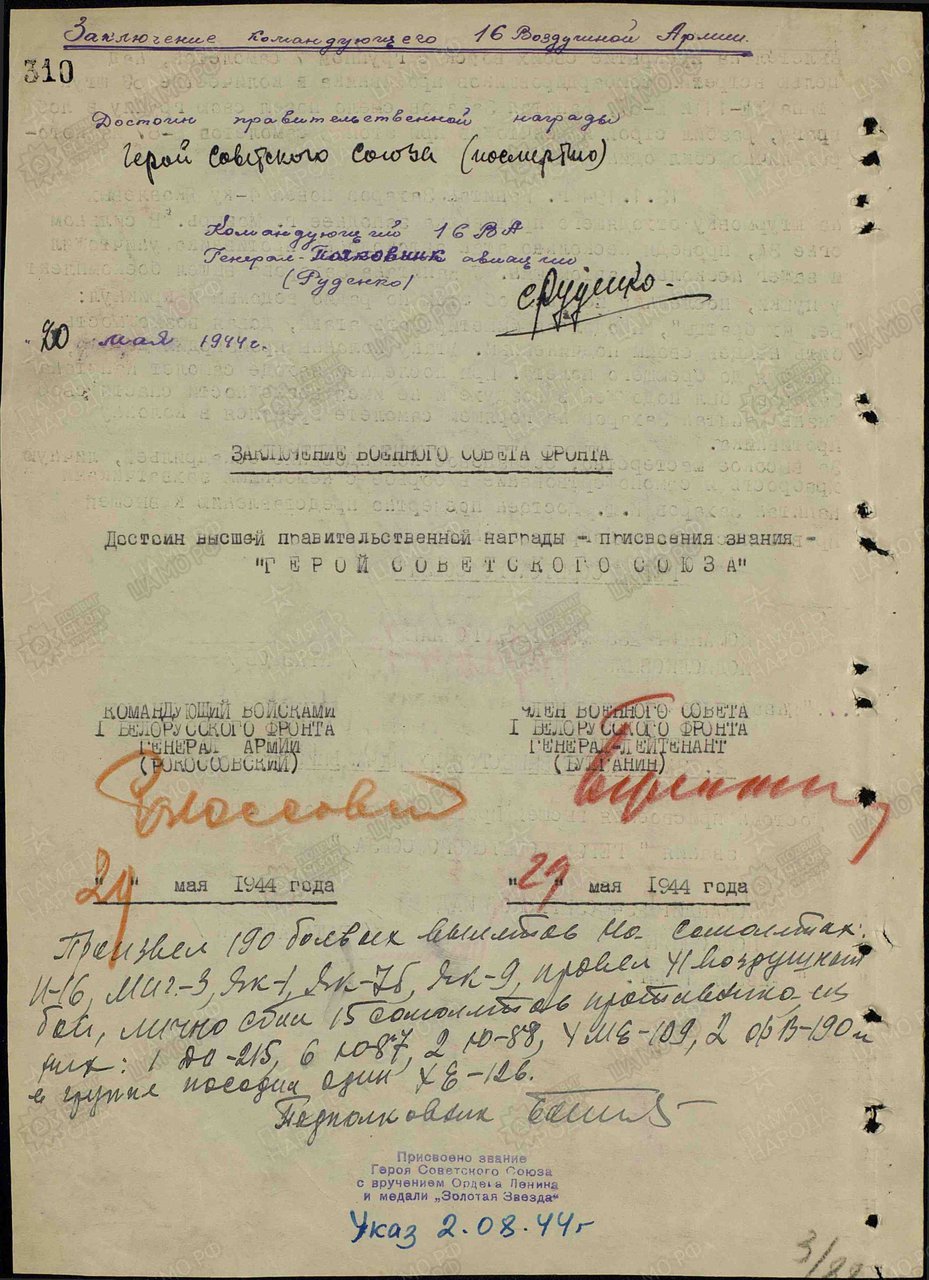 Заключение командующего 16 Воздушной Армии.
310
Достоин правительственной награды
Герой Советского Союза (посмертно)
Командующий 16 ВА
Генерал-Полковник авиации
(Руденко)
СРуденко
20 мая 1944г.
ЗАКЛЮЧЕНИЕ ВОЕННОГО СОВЕТА ФРОНТА
Достоин высшей правительственной награды - присвоения звания -
"ГЕРОЙ СОВЕТСКОГО СОЮЗА"
КОМАНДУЮЩИЙ ВОЙСКАМИ
I БЕЛОРУССКОГО ФРОНТА
ГЕНЕРАЛ АРМИИ
(РОКОССОВСКИЙ)
ЧЛЕН ВОЕННОГО СОВЕТА
I БЕЛОРУССКОГО ФРОНТА
ГЕНЕРАЛ-ЛЕЙТЕНАНТ
(БУЛГАНИН)
"29" мая 1944 года
"29" мая 1944 года
Произвел 190 боевых вылетов на самолетах:
И-16, Миг-3, Як-1, Як-7б, Як-9, провел 41 воздушный
бой, лично сбил 15 самолетов противника из
них: 1 До-215, 6 Ю-87, 2 Ю-88, 4 МЕ-109, 2 ФВ-190 и
в группе посадил один ХЕ-126.
Подполковник
Присвоено звание
Героя Советского Союза
с вручением Ордена Ленина
и медали „Золотая Звезда"
Указ 2.08.44г
ПАМЯТЬ НАРОДА
ПОДВИГ НАРОДА
ЦАМО.РФ